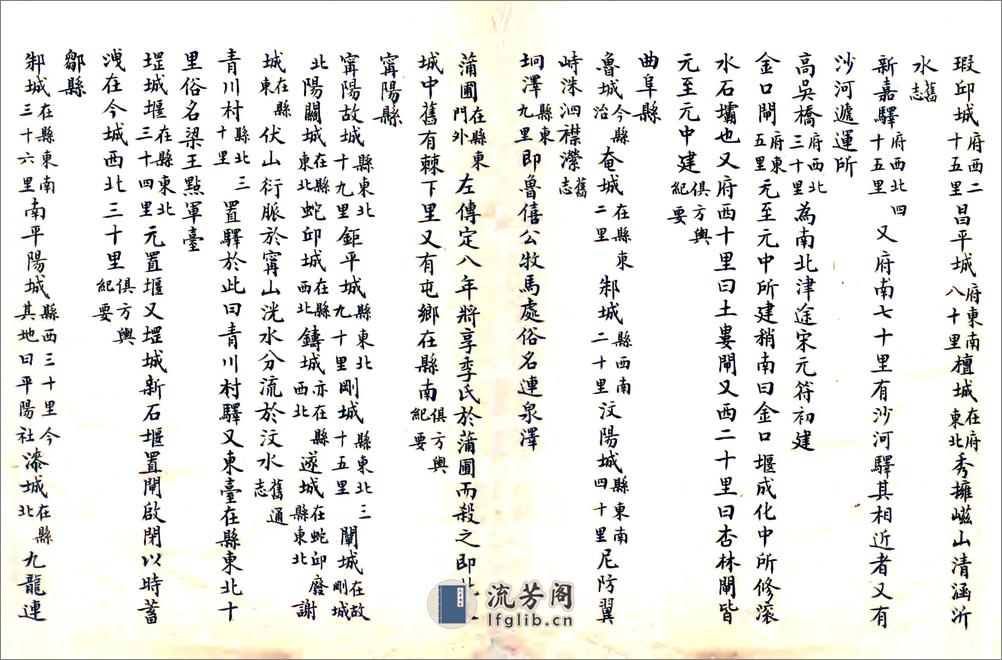 瑕邱城府西二十五里昌平城府東南八十里檀城在府東北秀擁嶫山清涵沂
水舊志
新嘉驛府西北四十五里又府南七十里有沙河驛其相近者又有
沙河遞運所
高吳橋府西北三十里為南北津途宋元符初建
金口閘府東五里元至元中所建稍南曰金口堰成化中所修滾
水石壩也又府西十里曰土婁閘又西二十里曰杏林閘皆
元至元中建俱方輿紀要
曲阜縣
魯城今縣治奄城在縣東二里邾城縣西南二十里汶陽城縣東南四十里尼防翼
峙洙泗襟濴舊志
坰澤縣東九里即魯僖公牧馬處俗名連泉澤
蒲圃在縣東門外左傳定八年將享季氏於蒲圃而殺之即此
城中舊有棘下里又有屯鄉在縣南俱方輿紀要
寗陽縣
寗陽故城縣東北十九里鉅平城縣東北九十里剛城縣東北三十五里闡城在故剛城
北陽關城在縣東北蛇邱城在縣西北鑄城亦在縣西北遂城在蛇邱縣東北廢謝
城在縣東伏山衍脈於寗山洸水分流於汶水舊志通
青川村縣北三十里置驛於此曰青川村驛又東臺在縣東北十
里俗名梁王點軍臺
堽城堰在縣東北三十四里元置堰又堽城新石堰置閘啟閉以時蓄
洩在今城西北三十里俱方輿紀要
鄒縣
邾城在縣東南三十六里南平陽城縣西三十里今其地曰平陽社漆城在縣北九龍連
流芳阁
lfglib.cn